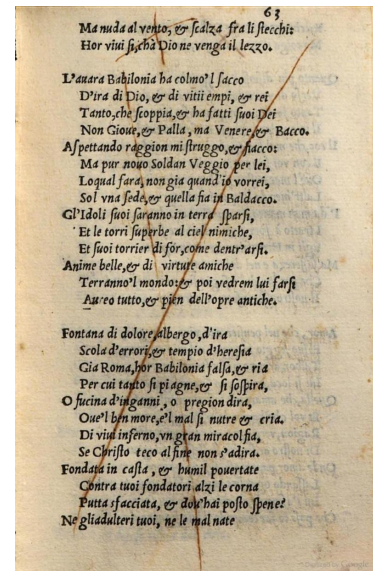 63
Ma nuda al vento, & scalza fra li stecchi:
Hor viui si, chà Dio ne venga il lezzo.
L'auara Babilonia ha colmo'l sacco
D'ira di Dio, & di vitii empi, & rei
Tanto, che scoppia, & ha fatti suoi Dei
Non Gioue, & Palla, ma Venere & Bacco.
Aspettando raggion mi struggo, & fiacco:
Ma pur nouo Soldan Veggio per lei,
Loqual fara, non gia quand'io vorrei,
Sol vna sede, & quella fia in Baldacco.
Gl'Idoli suoi saranno in terra sparsi,
Et le torri superbe al ciel nimiche,
Et suoi torrier di for, come dentr'arsi.
Anime belle, & di virtute amiche
Terranno'l mondo: & poi vedrem lui farsi
Aureo tutto, & pien dell'opre antiche.
Fontana di dolore, albergo, d'ira
Scola d'errori, & tempio d'heresia
Gia Roma, hor Babilonia falsa, & ria
Per cui tanto si piagne, & si sospira,
O fucina d'inganni, o pregion dira,
Oue'l ben more, e'l mal si nutre & cria.
Di viui inferno, vn gran miracol fia,
Se Christo teco al fine non s'adira.
Fondata in casta, & humil pouertate
Contra tuoi fondatori alzi le corna
Putta sfacciata, & dou'hai posto spene?
Ne gliadulteri tuoi, ne le mal nate